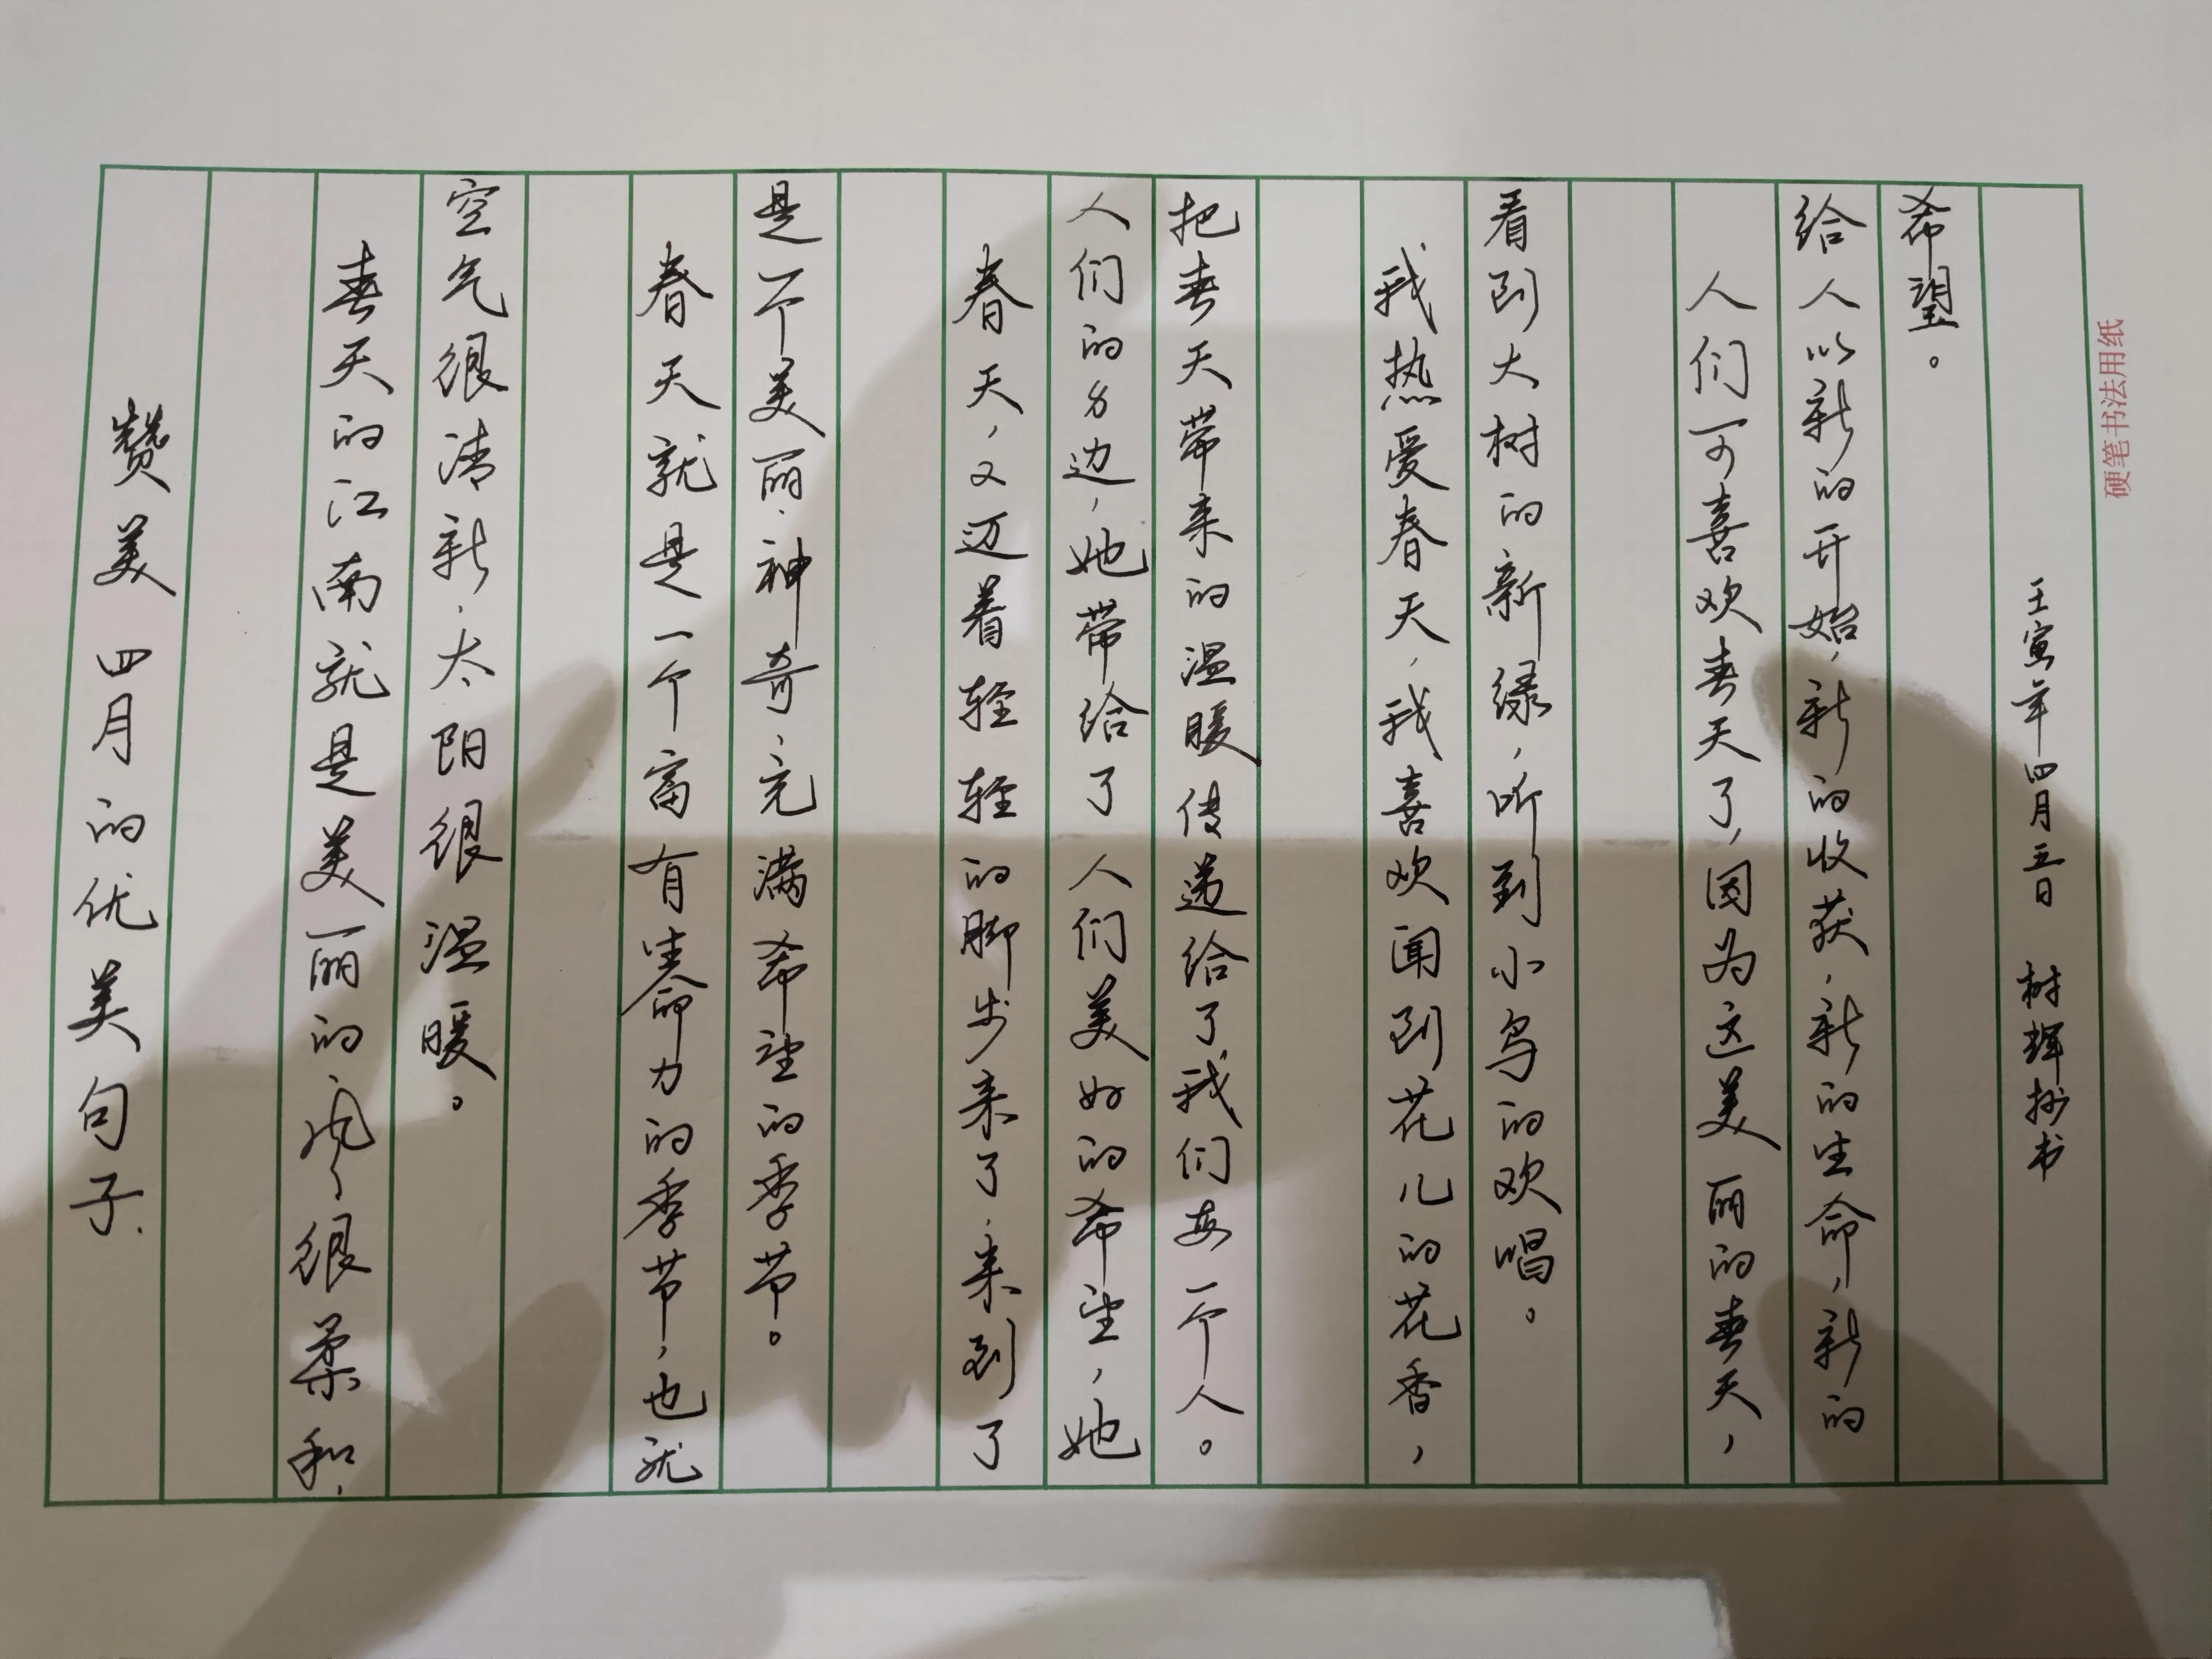 赞美四月的优美句子.
春天的江南就是美丽的风很柔和，
空气很清新，太阳很温暖。
春天就是一个富有生命力的季节，也就
是一个美丽、神奇、充满希望的季节。
春天，又迈着轻轻的脚步来了，来到了
人们的身边，她带给了人们美好的希望，她
把春天带来的温暖传递给了我们每一个人。
我热爱春天，我喜欢闻到花儿的花香，
看到大树的新绿，听到小鸟的欢唱。
人们可喜欢春天了，因为这美丽的春天，
给人以新的开始，新的收获，新的生命，新的
希望。
壬寅年四月五日 树辉抄书
硬笔书法用纸